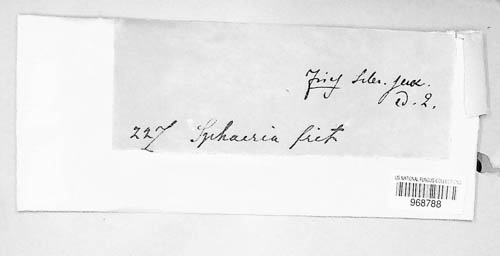 Fries Scler. suec.
ed. 2.
227 Sphaeria frit
US NATIONAL FUNGUS COLLECTIONS
968788